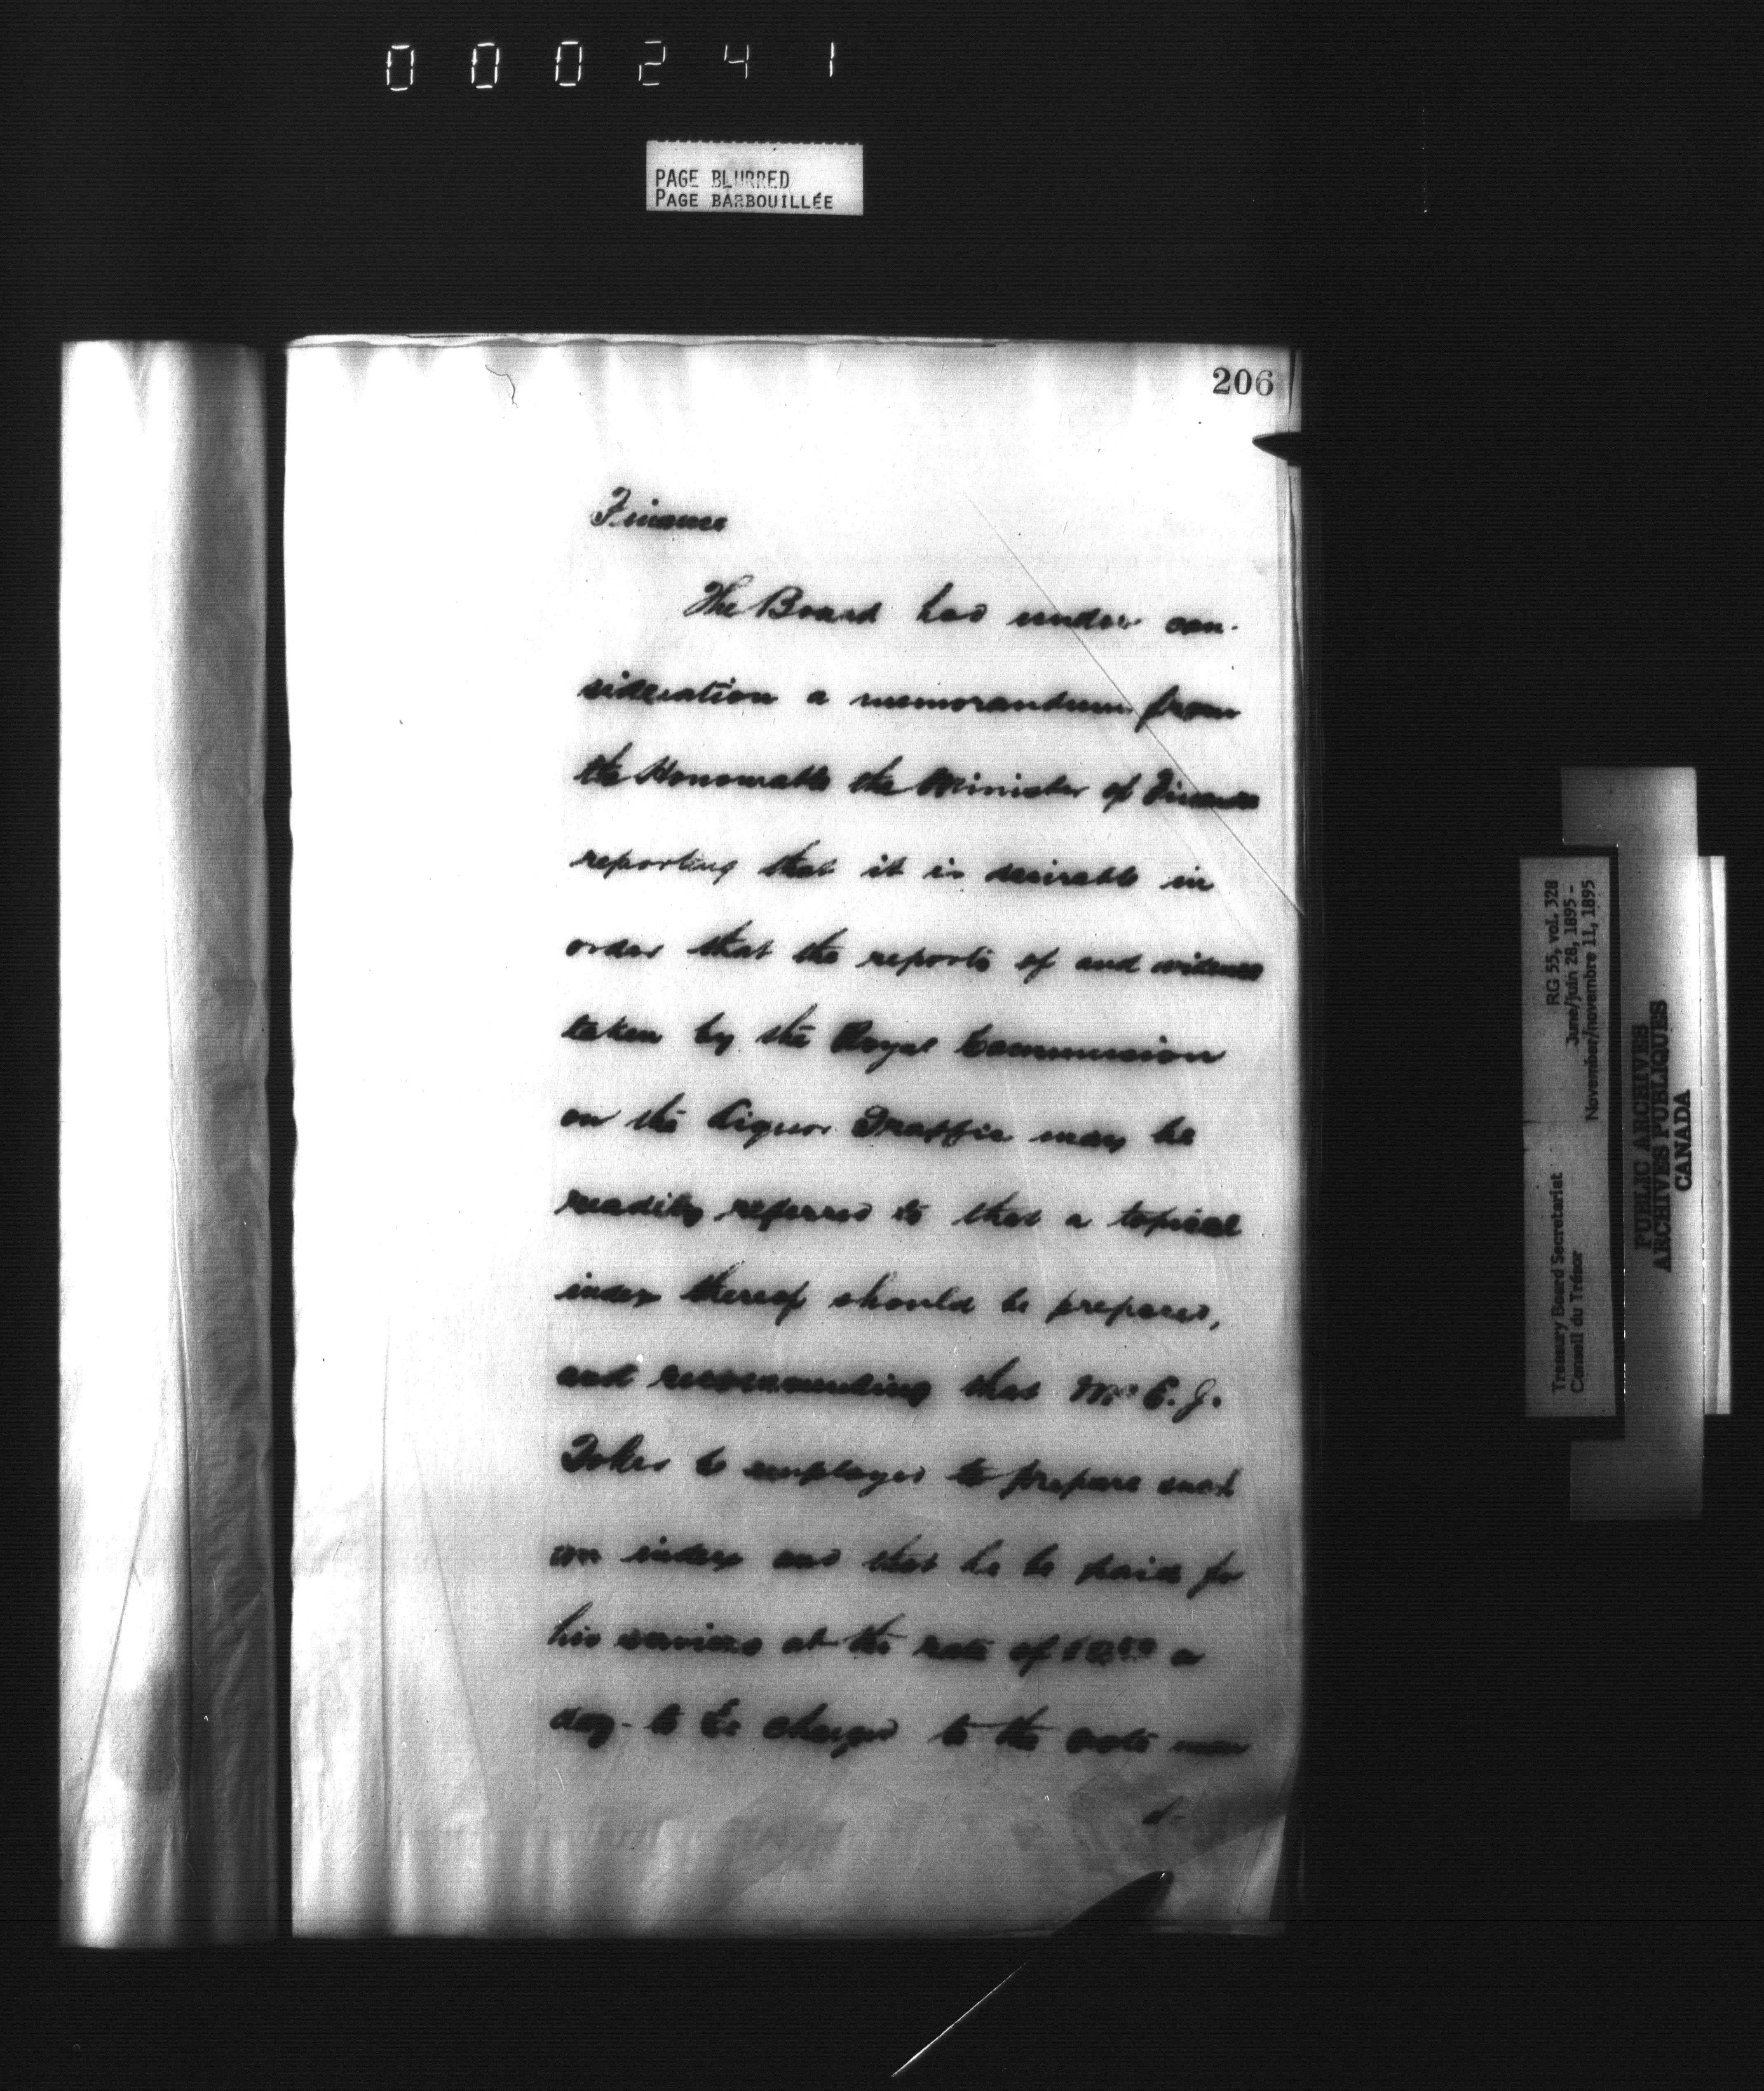 000241
PAGE BLURRED
PAGE BARBOUILLÉE
206
Finance
The Board had under con-
sideration a memorandum from
the Honourable the Minister of Finance
reporting that it is desirable in
order that the reports of and evidence
taken by the Royal Commission
on the Liquor Traffic may be
readily referred to that a topical
index thereof should be prepared,
and recommending that Mr E. J.
be employed to prepare such
an index and that he be paid for
his services at the rate of a
day - to be charged to the vote
Treasury Board Secretariat RG 55, vol. 328
Conseil du Trésor June/juin 28, 1895 -
November/novembre 11, 1895
PUBLIC ARCHIVES
ARCHIVES PUBLIQUES
CANADA